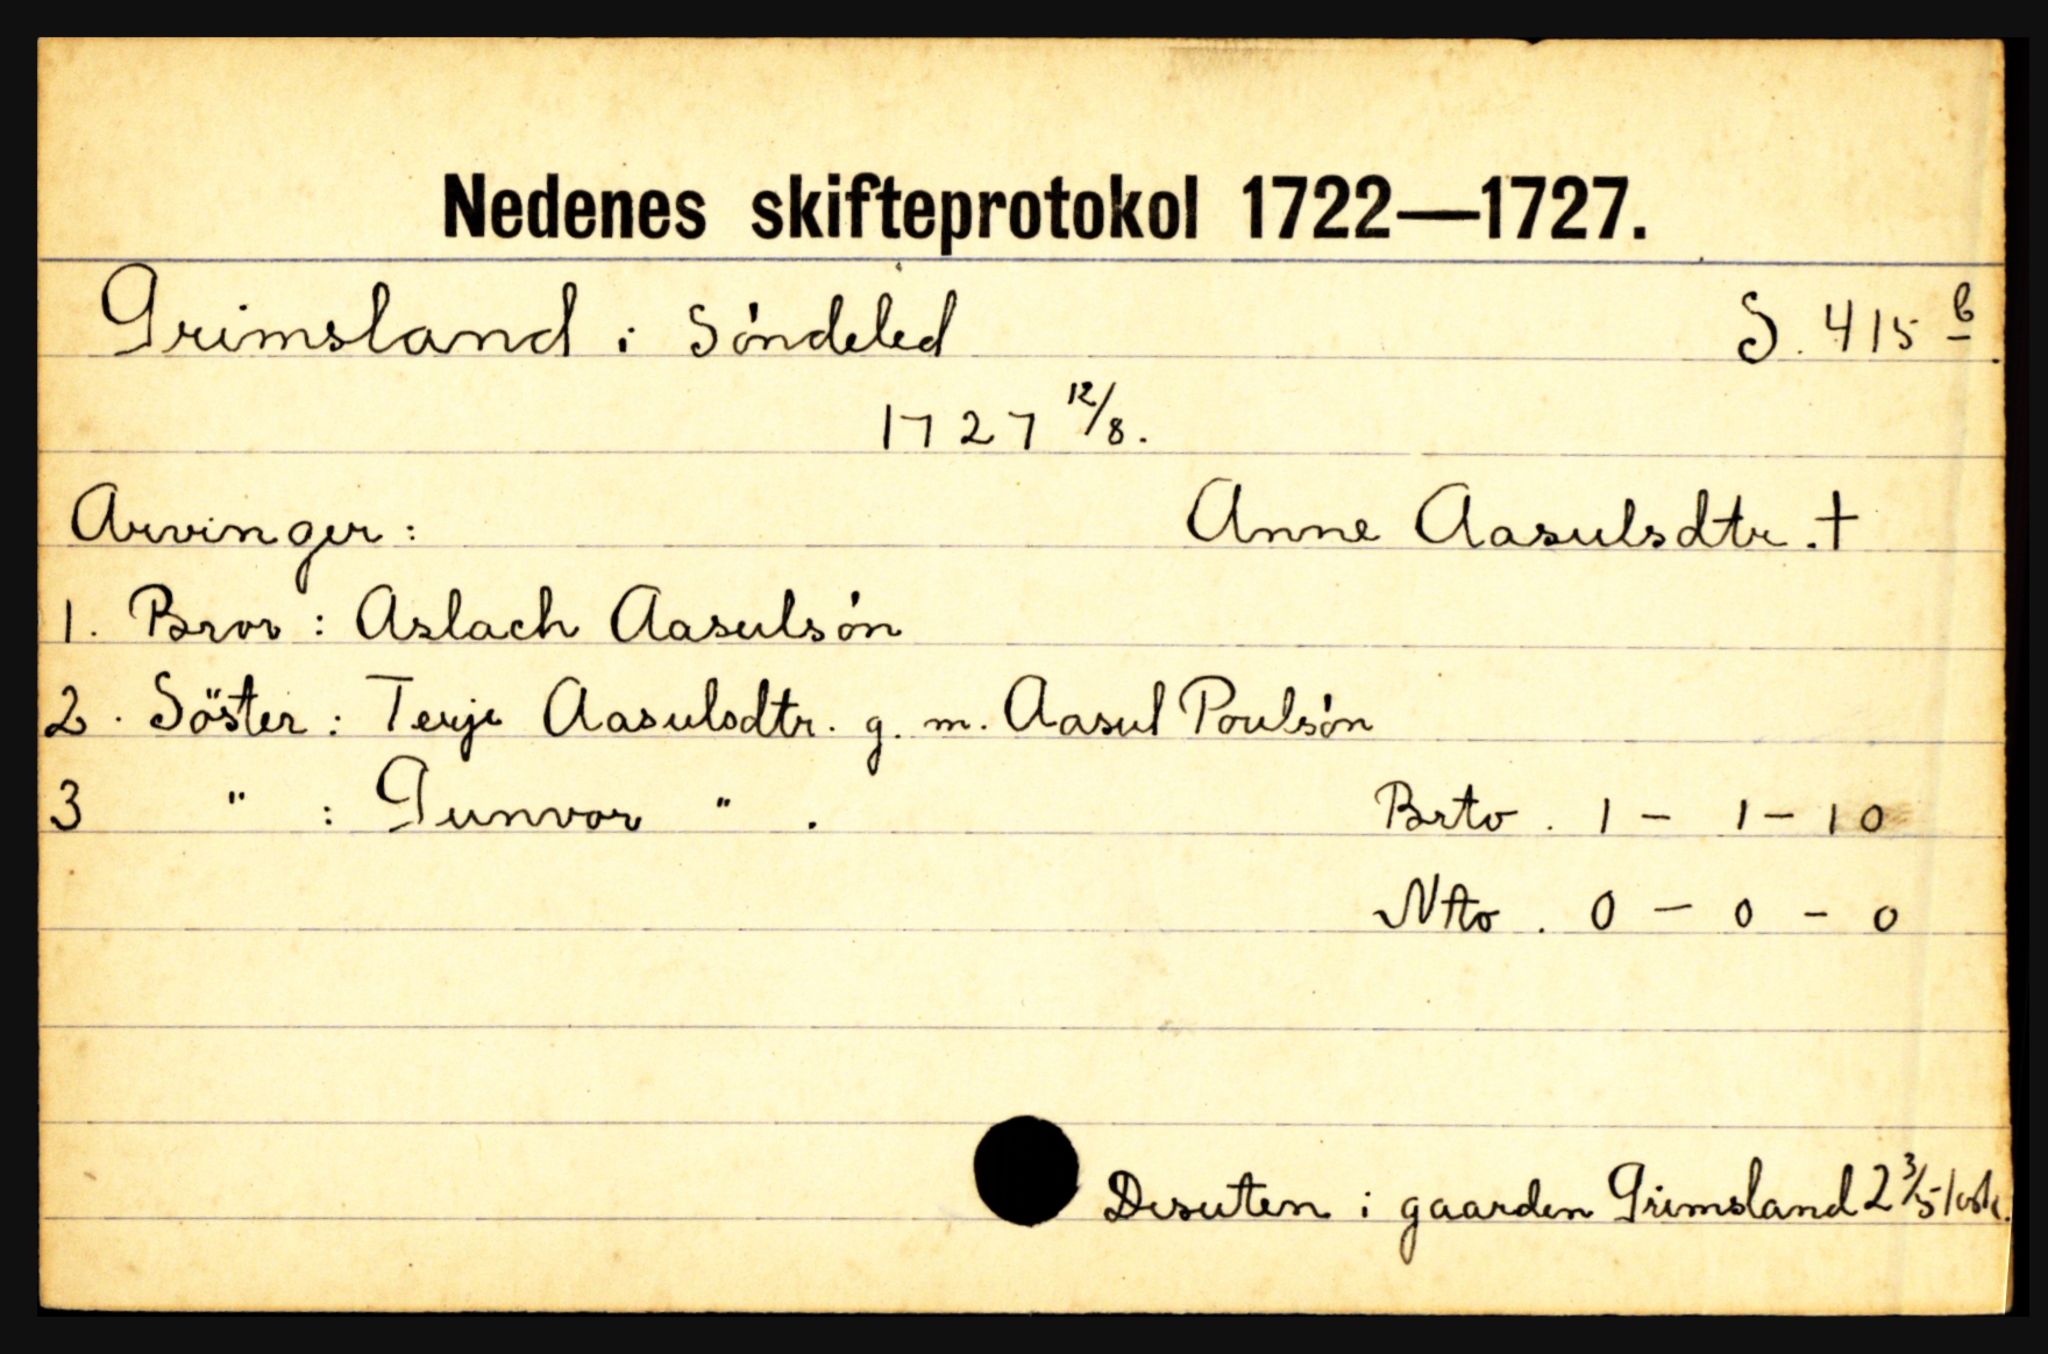 Nedenes skifteprotokol 1722—1727.
Grimsland i Söndeled S. 415 b.
1727 12/8.
Arvinger: Anne Aasulsdtr. †
1. Bror : Aslach Aasulsön
2. Söster : Terje Aasulsdtr. g. m. Aasul Poulsön
3 " : Gunvor " .
Brto. 1 - 1 - 10
Nto. 0 - 0 - 0
Desuten i gaarden Grimsland 2 3/5